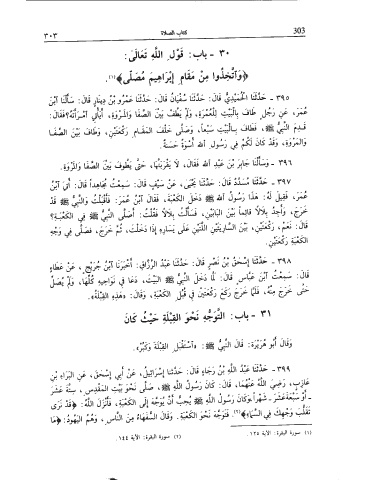 ٣٠٣ كتاب الصلاة 303
٣٠ - باب: قَوْلِ اللَّهِ تَعَالَى:
﴿وَاتَّخِذُوا مِنْ مَقَامِ إِبْرَاهِيمَ مُصَلًّى﴾(١).
٣٩٥ - حَدَّثَنَا الْحُمَيْدِيُّ قَالَ: حَدَّثَنَا سُفْيَانُ قَالَ: حَدَّثَنَا عَمْرُو بْنُ دِينَارٍ قَالَ: سَأَلْنَا ابْنَ
عُمَرَ، عَنْ رَجُلٍ طَافَ بِالْبَيْتِ لِلْعُمْرَةِ، وَلَمْ يَطُفْ بَيْنَ الصَّفَا وَالْمَرْوَةِ، أَيَأْتِي امْرَأَتَهُ؟ فَقَالَ:
قَدِمَ النَّبِيُّ ﷺ، فَطَافَ بِالْبَيْتِ سَبْعاً، وَصَلَّى خَلْفَ الْمَقَامِ رَكْعَتَيْنِ، وَطَافَ بَيْنَ الصَّفَا
وَالْمَرْوَةِ، وَقَدْ كَانَ لَكُمْ فِي رَسُولِ اللَّهِ أُسْوَةٌ حَسَنَةٌ.
٣٩٦ - وَسَأَلْنَا جَابِرَ بْنَ عَبْدِ اللَّهِ فَقَالَ: لَا يَقْرَبَنَّهَا، حَتَّى يَطُوفَ بَيْنَ الصَّفَا وَالْمَرْوَةِ.
٣٩٧ - حَدَّثَنَا مُسَدَّدٌ قَالَ: حَدَّثَنَا يَحْيَى، عَنْ سَيْفٍ قَالَ: سَمِعْتُ مُجَاهِداً قَالَ: أُتِيَ ابْنُ
عُمَرَ، فَقِيلَ لَهُ: هَذَا رَسُولُ اللَّهِ ﷺ دَخَلَ الْكَعْبَةَ، فَقَالَ ابْنُ عُمَرَ: فَأَقْبَلْتُ وَالنَّبِيُّ ﷺ قَدْ
خَرَجَ، وَأَجِدُ بِلَالاً قَائِماً بَيْنَ الْبَابَيْنِ، فَسَأَلْتُ بِلَالاً فَقُلْتُ: أَصَلَّى النَّبِيُّ ﷺ فِي الْكَعْبَةِ؟
قَالَ: نَعَمْ، رَكْعَتَيْنِ، بَيْنَ السَّارِيَتَيْنِ اللَّتَيْنِ عَلَى يَسَارِهِ إِذَا دَخَلْتَ، ثُمَّ خَرَجَ، فَصَلَّى فِي وَجْهِ
الْكَعْبَةِ رَكْعَتَيْنِ.
٣٩٨ - حَدَّثَنَا إِسْحَقُ بْنُ نَصْرٍ قَالَ: حَدَّثَنَا عَبْدُ الرَّزَّاقِ: أَخْبَرَنَا ابْنُ جُرَيْجٍ، عَنْ عَطَاءٍ
قَالَ: سَمِعْتُ ابْنَ عَبَّاسٍ قَالَ: لَمَّا دَخَلَ النَّبِيُّ ﷺ الْبَيْتَ، دَعَا فِي نَوَاحِيهِ كُلِّهَا، وَلَمْ يُصَلِّ
حَتَّى خَرَجَ مِنْهُ، فَلَمَّا خَرَجَ رَكَعَ رَكْعَتَيْنِ فِي قُبُلِ الْكَعْبَةِ، وَقَالَ: «هَذِهِ الْقِبْلَةُ».
٣١ - باب: التَّوَجُّهِ نَحْوَ الْقِبْلَةِ حَيْثُ كَانَ
وَقَالَ أَبُو هُرَيْرَةَ: قَالَ النَّبِيُّ ﷺ: «اسْتَقْبِلِ الْقِبْلَةَ وَكَبِّرْ».
٣٩٩ - حَدَّثَنَا عَبْدُ اللَّهِ بْنُ رَجَاءٍ قَالَ: حَدَّثَنَا إِسْرَائِيلُ، عَنْ أَبِي إِسْحَقَ، عَنِ الْبَرَاءِ بْنِ
عَازِبٍ، رَضِيَ اللَّهُ عَنْهُمَا، قَالَ: كَانَ رَسُولُ اللَّهِ ﷺ، صَلَّى نَحْوَ بَيْتِ الْمَقْدِسِ، سِتَّةَ عَشَرَ
- أَوْ سَبْعَةَ عَشَرَ - شَهْراً، وَكَانَ رَسُولُ اللَّهِ ﷺ يُحِبُّ أَنْ يُوَجَّهَ إِلَى الْكَعْبَةِ، فَأَنْزَلَ اللَّهُ: ﴿قَدْ نَرَى
تَقَلُّبَ وَجْهِكَ فِي السَّمَاءِ﴾(٢). فَتَوَجَّهَ نَحْوَ الْكَعْبَةِ. وَقَالَ السُّفَهَاءُ مِنَ النَّاسِ، وَهُمُ الْيَهُودُ: ﴿مَا
(١) سورة البقرة: الآية ١٢٥. (٢) سورة البقرة: الآية ١٤٤.